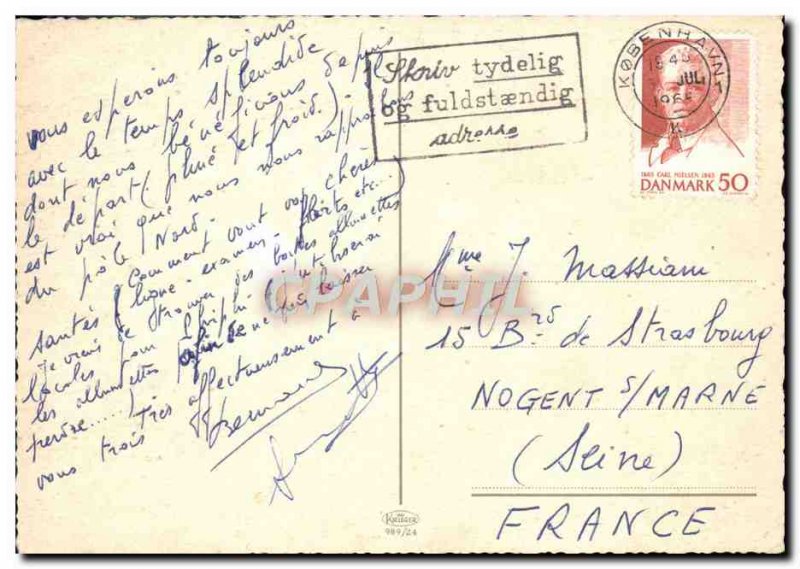 vous espérons toujours
avec le temps splendide
dont nous bénéficions depuis
le départ (pluie et froid). Il
est vrai que nous nous rapprochons
du pôle Nord.
Comment vont vos chères
santés (ligne - examen - flirts etc...
Je viens de trouver des boîtes allumettes
locales pour
les allumettes afin de ne pas laisser
perdre.....)
Très affectueusement à
vous trois
Bernard
Skriv tydelig
og fuldstændig
adresse
KØBENHAVN
JUL
1965
K
1865 CARL NIELSEN 1965
DANMARK 50
Mme J. Massiani
15 Brd de Strasbourg
NOGENT S/MARNE
(Seine)
FRANCE
CPAPHIL
KRÜGER
989/24